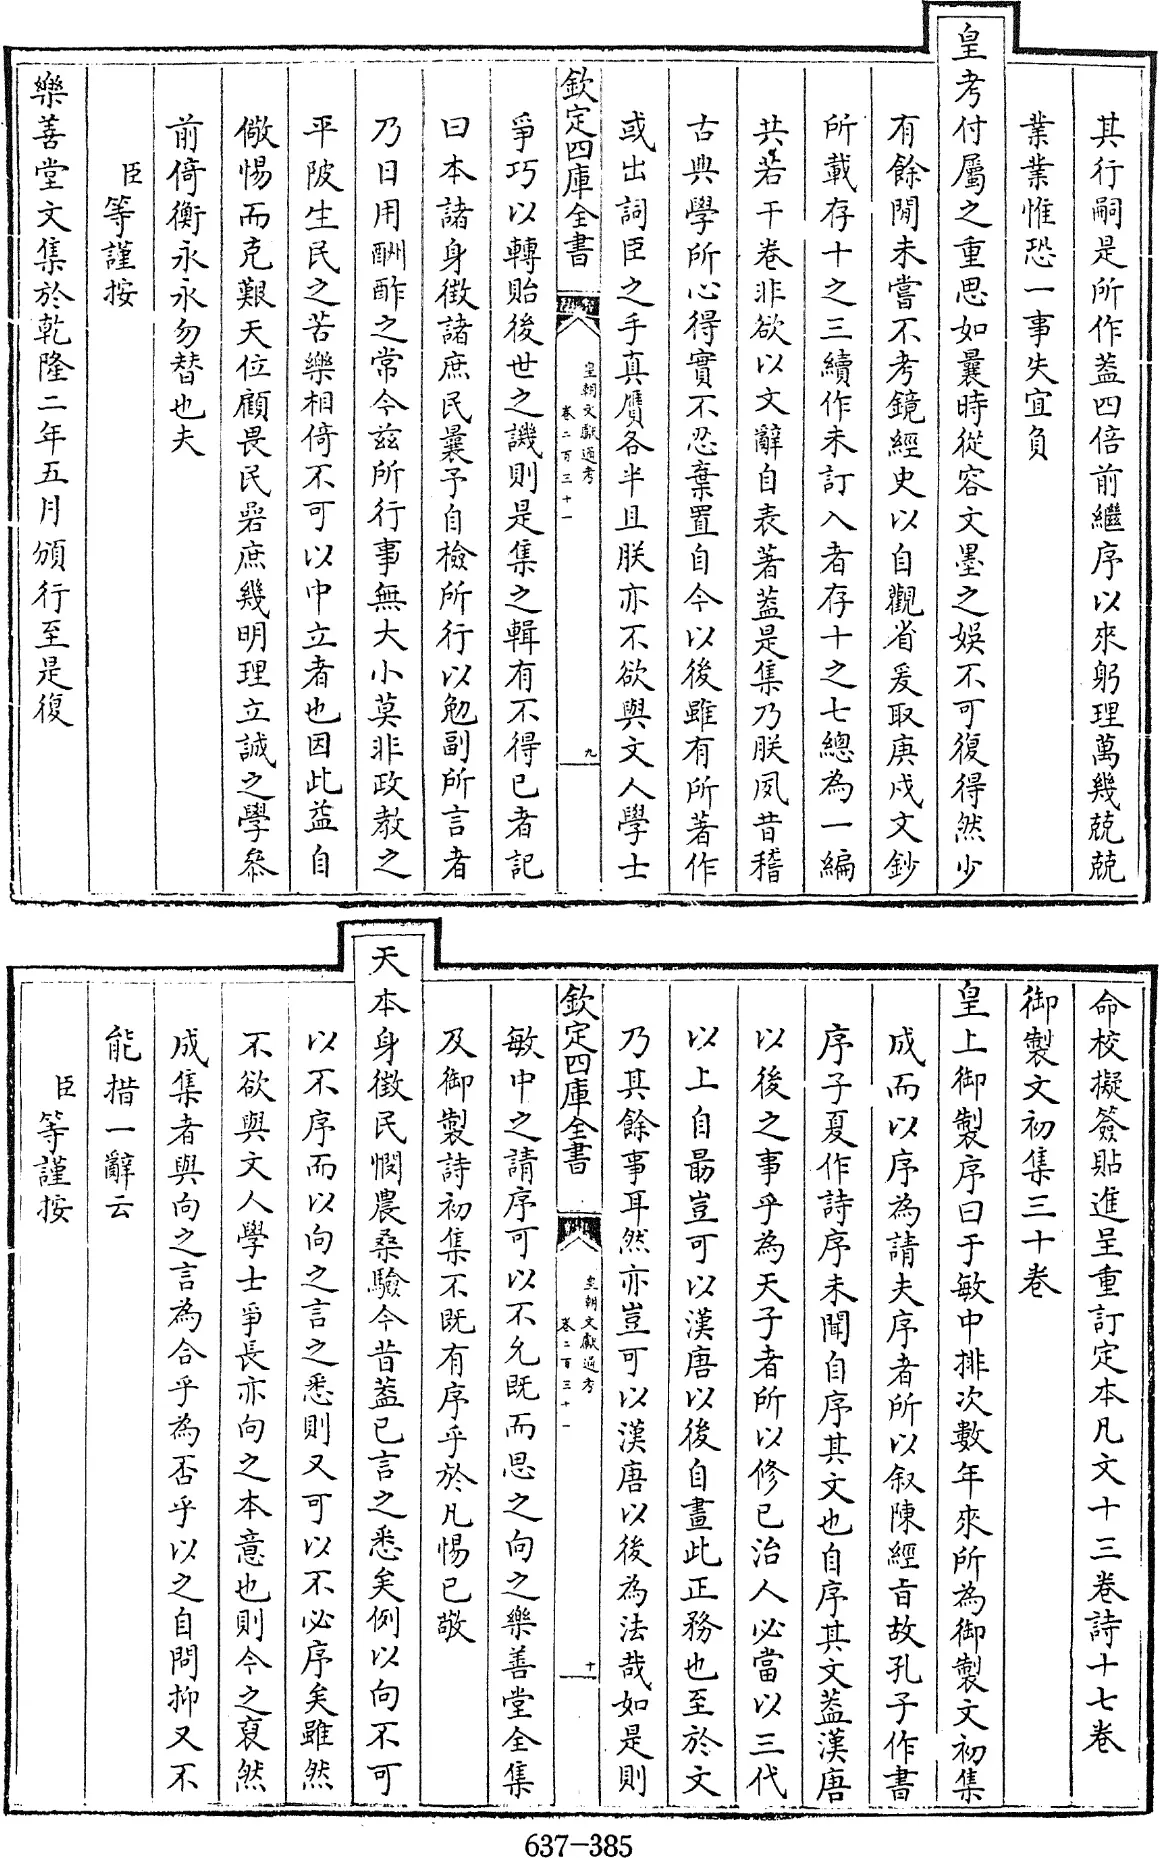 其行嗣是所作葢四倍前繼序以來躬理萬幾兢兢
業業惟恐一事失宜負
皇考付屬之重思如曩時從容文墨之娛不可復得然少
有餘閒未嘗不考鏡經史以自觀省爰取庚戌文鈔
所載存十之三續作未訂入者存十之七總為一編
共若干卷非欲以文辭自表著葢是集乃朕夙昔稽
古典學所心得實不忍棄置自今以後雖有所著作
或出詞臣之手真贋各半且朕亦不欲與文人學士
欽定四庫全書
皇朝文獻通考
卷二百三十一
九
爭巧以轉貽後世之譏則是集之輯有不得已者記
曰本諸身徵諸庶民曩予自檢所行以勉副所言者
乃日用酬酢之常今兹所行事無大小莫非政教之
平陂生民之苦樂相倚不可以中立者也因此益自
儆惕而克艱天位顧畏民碞庶幾明理立誠之學參
前倚衡永永勿替也夫
臣等謹按
樂善堂文集於乾隆二年五月頒行至是復
命校擬簽貼進呈重訂定本凡文十三卷詩十七卷
御製文初集三十卷
皇上御製序曰于敏中排次數年來所為御製文初集
成而以序為請夫序者所以叙陳經旨故孔子作書
序子夏作詩序未聞自序其文也自序其文葢漢唐
以後之事乎為天子者所以修已治人必當以三代
以上自勗豈可以漢唐以後自畫此正務也至於文
乃其餘事耳然亦豈可以漢唐以後為法哉如是則
欽定四庫全書
皇朝文獻通考
卷二百三十一
十
敏中之請序可以不允既而思之向之樂善堂全集
及御製詩初集不既有序乎於凡惕已敬
天本身徵民憫農桑驗今昔葢已言之悉矣例以向不可
以不序而以向之言之悉則又可以不必序矣雖然
不欲與文人學士爭長亦向之本意也則今之裒然
成集者與向之言為合乎為否乎以之自問抑又不
能措一辭云
臣等謹按
637-385